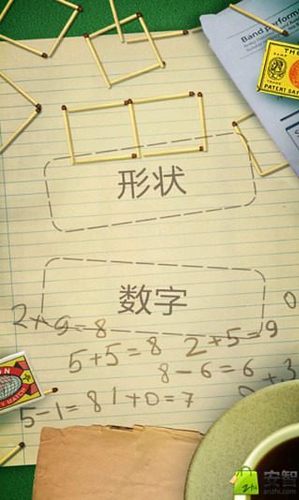 Band Perform
THE
PATENT SAF
形状
数字
2+9=8
5+5=8
2+5=9
8-6=6
0
0+3
5-1=8
81+0=7
安智
anzhi.com